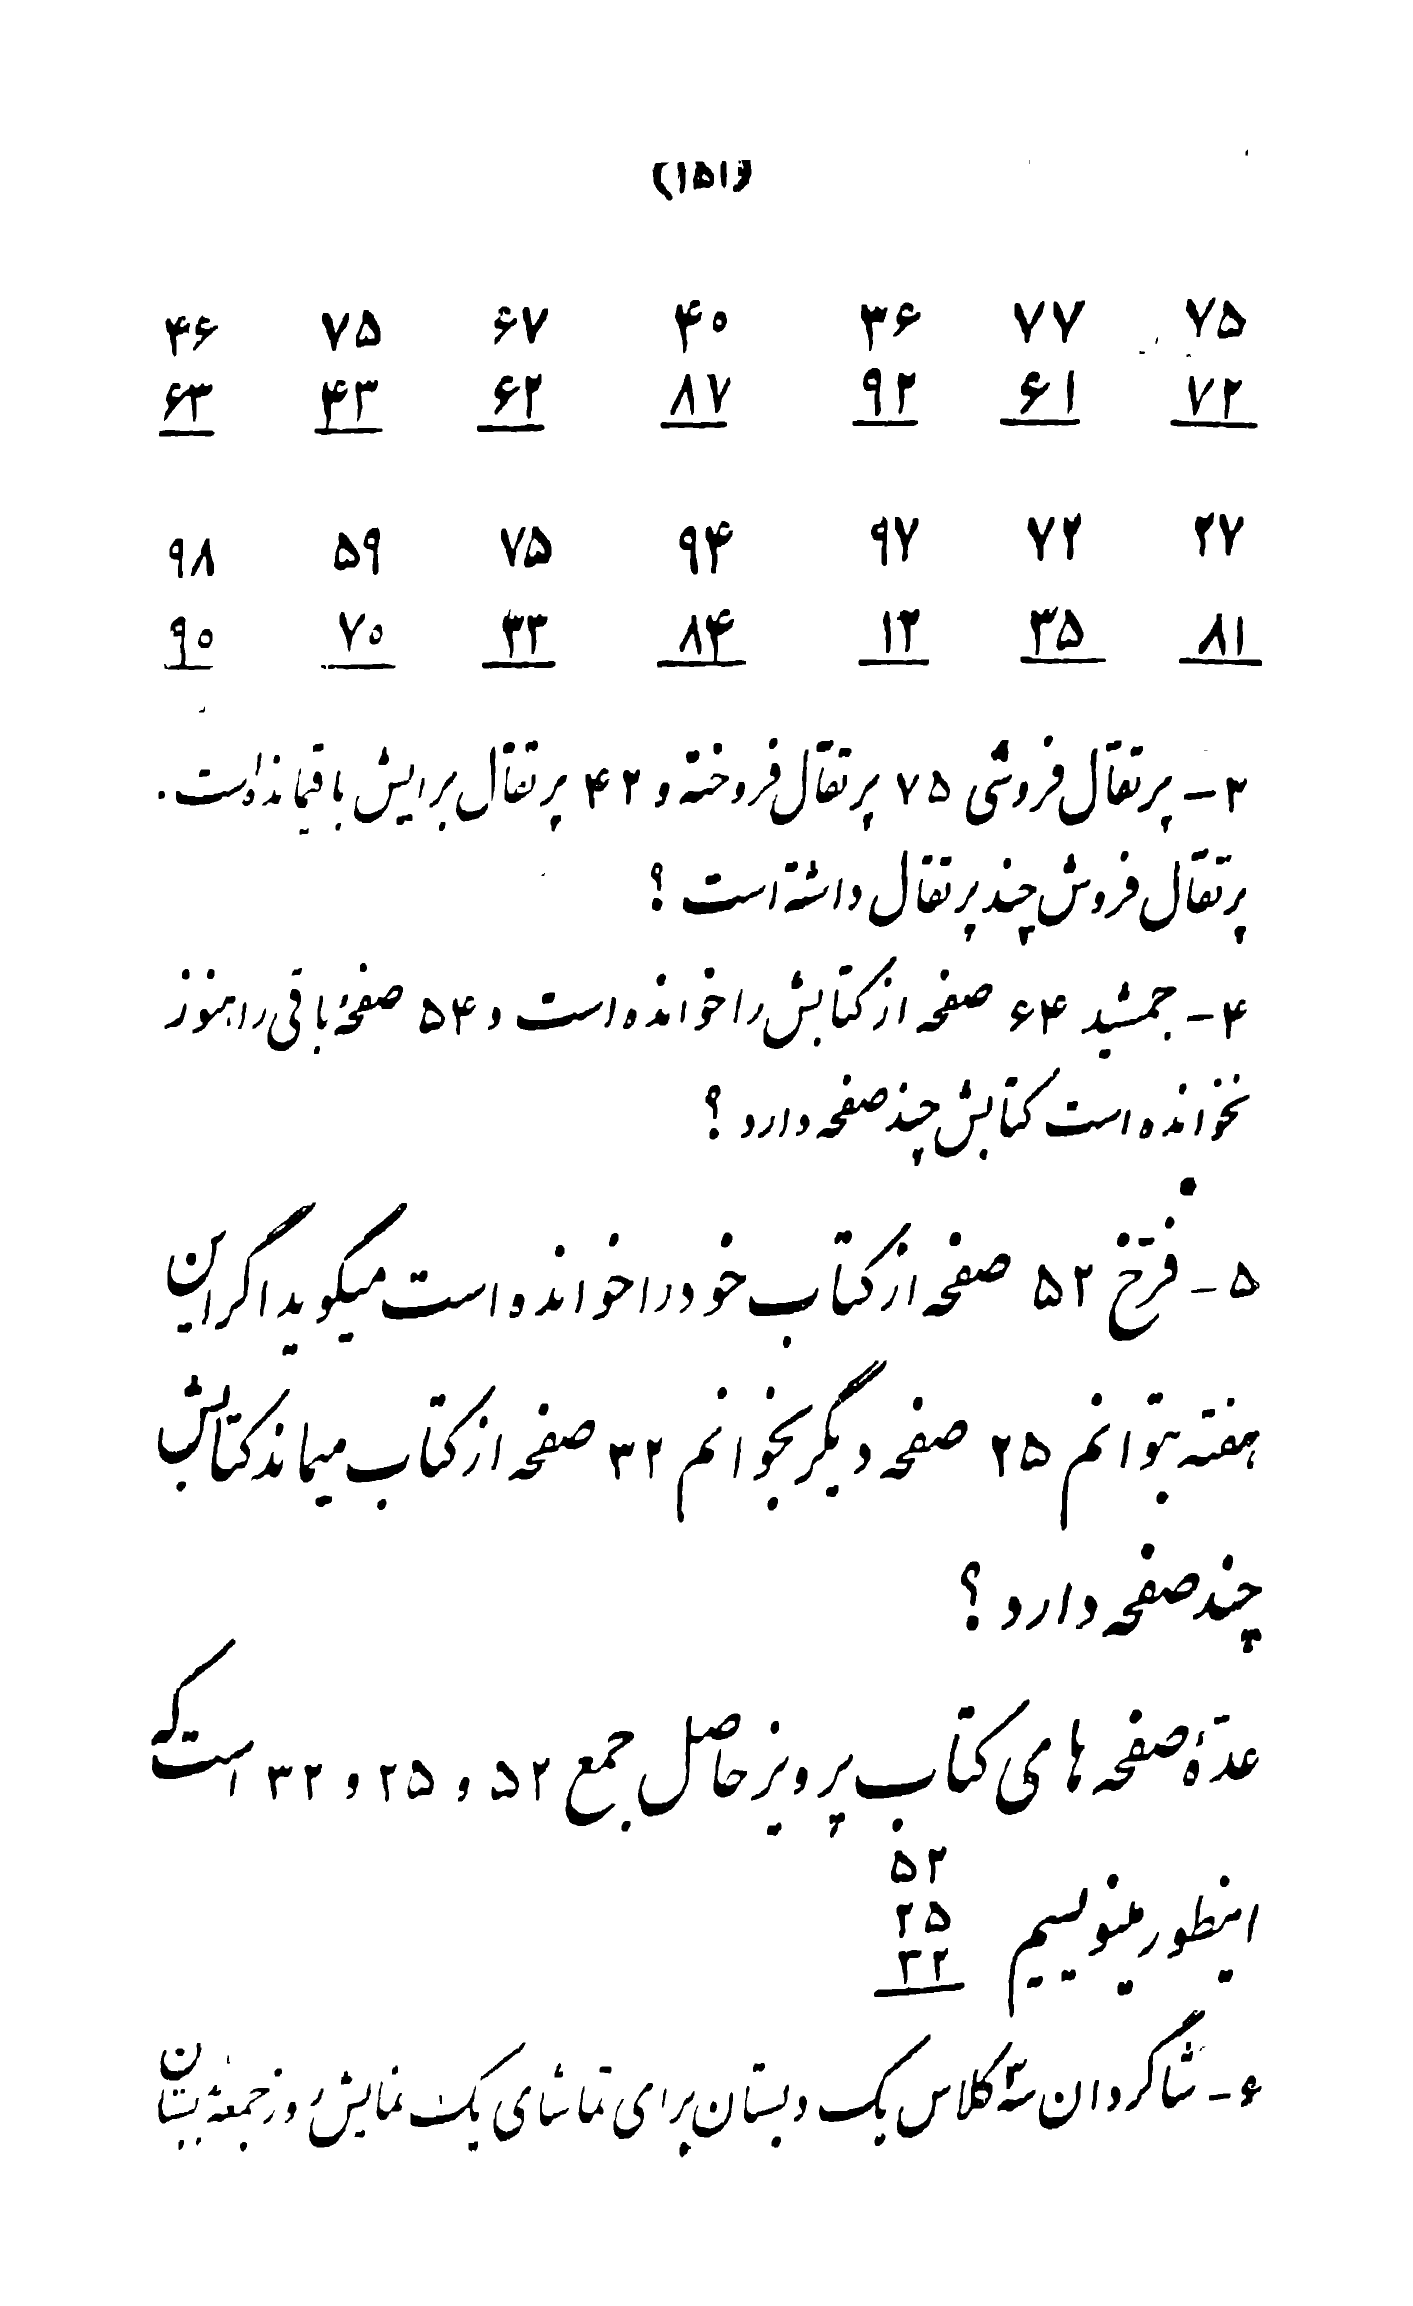 (۱۵۱)
۴۶ ۷۵ ۶۷ ۴۰ ۳۶ ۷۷ ۷۵
۶۳ ۴۳ ۶۲ ۸۷ ۹۲ ۶۱ ۷۲
۹۸ ۵۹ ۷۵ ۹۴ ۹۷ ۷۲ ۲۷
۹۰ ۷۰ ۳۳ ۸۴ ۱۲ ۳۵ ۸۱
۳- پرتقال فروشی ۷۵ پرتقال فروخته و ۴۲ پرتقال برایش باقیمانده‌است.
پرتقال فروش چند پرتقال داشته است ؟
۴- جمشید ۶۴ صفحه از کتابش را خوانده است و ۵۴ صفحهٔ باقی را هنوز
نخوانده است کتابش چند صفحه دارد ؟
۵- فرّخ ۵۲ صفحه از کتاب خود را خوانده است میگوید اگر این
هفته بتوانم ۲۵ صفحه دیگر بخوانم ۳۲ صفحه از کتاب میماند کتابش
چند صفحه دارد ؟
عدّهٔ صفحه های کتاب پرویز حاصل جمع ۵۲ و ۲۵ و ۳۲ است که
۵۲
اینطور مینویسیم ۲۵
۳۲
۶- شاگردان سه کلاس یک دبستان برای تماشای یک نمایش روز جمعه بدبستان